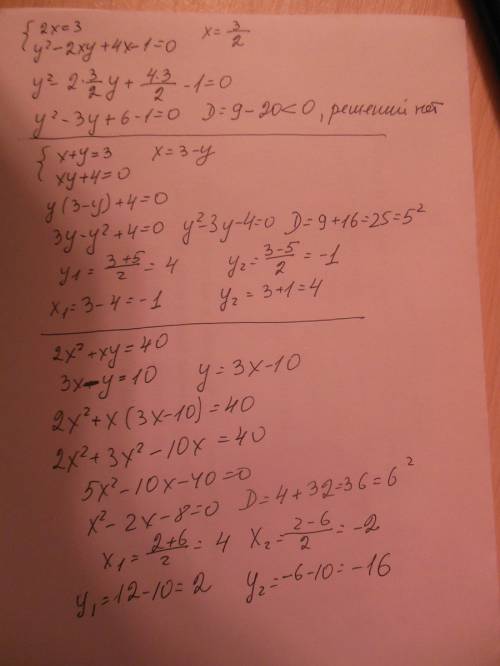 { 2x=3
y²-2xy+4x-1=0 x=3/2
y²-2·3/2y+4·3/2-1=0
y²-3y+6-1=0 D=9-20<0, решений нет
{ x+y=3 x=3-y
xy+4=0
y(3-y)+4=0
3y-y²+4=0 y²-3y-4=0 D=9+16=25=5²
y1=3+5/2=4 y2=3-5/2=-1
x1=3-4=-1 y2=3+1=4
2x²+xy=40
3x-y=10 y=3x-10
2x²+x(3x-10)=40
2x²+3x²-10x=40
5x²-10x-40=0
x²-2x-8=0 D=4+32=36=6²
x1=2+6/2=4 x2=2-6/2=-2
y1=12-10=2 y2=-6-10=-16